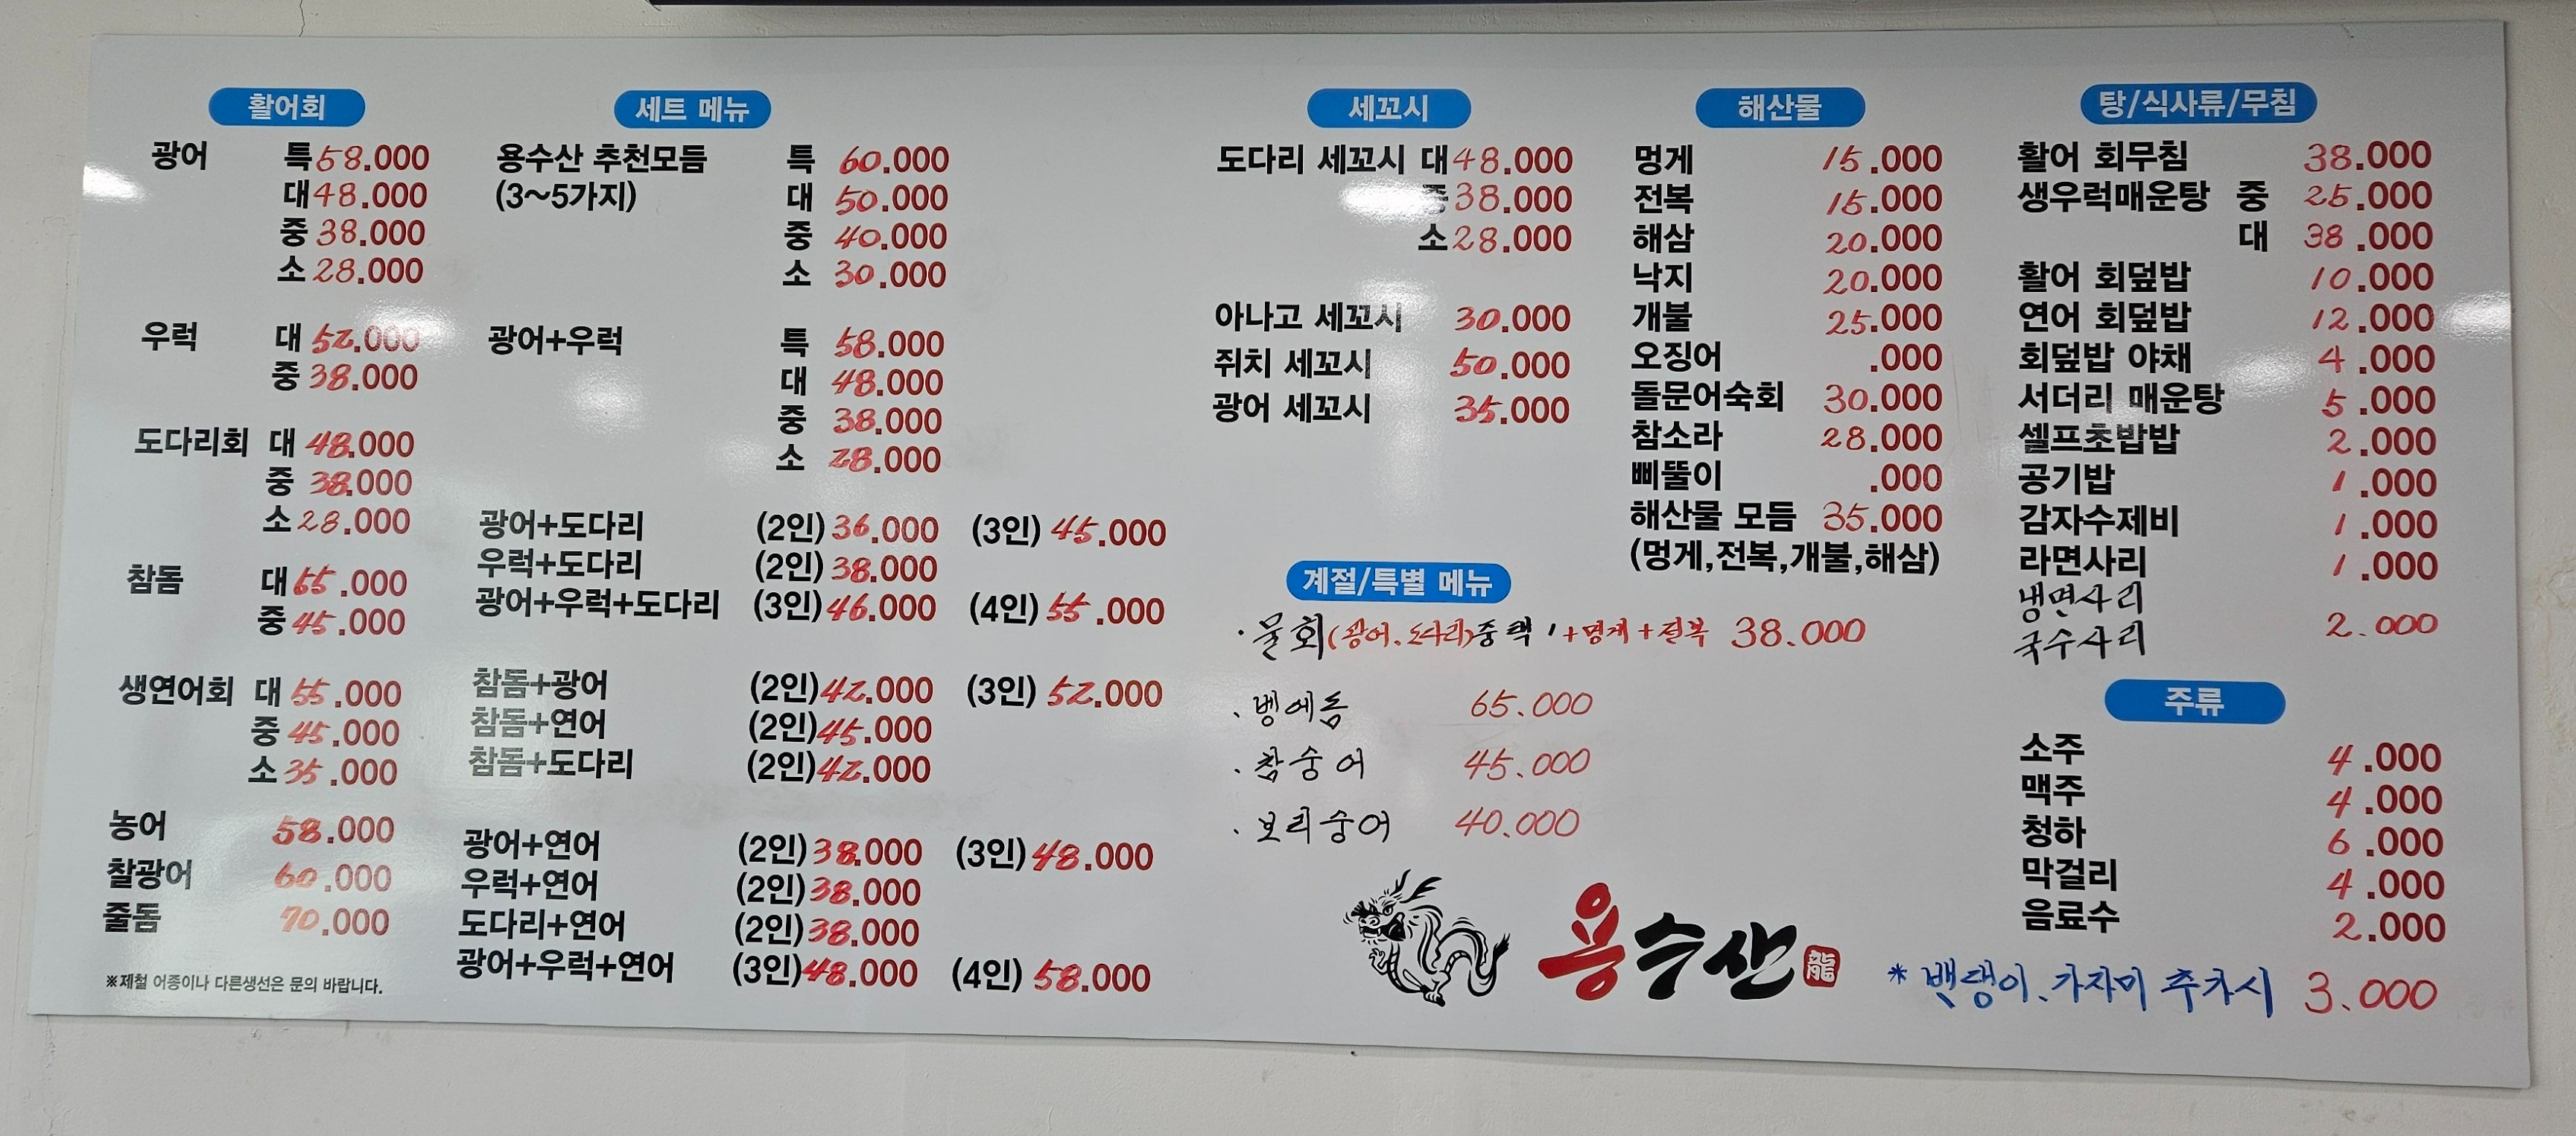 활어회
광어 특 58.000
대 48.000
중 38.000
소 28.000
우럭 대 52.000
중 38.000
도다리회 대 48.000
중 38.000
소 28.000
참돔 대 55.000
중 45.000
생연어회 대 55.000
중 45.000
소 35.000
농어 58.000
찰광어 60.000
줄돔 70.000
※제철 어종이나 다른생선은 문의 바랍니다.
세트 메뉴
용수산 추천모듬 특 60.000
(3~5가지) 대 50.000
중 40.000
소 30.000
광어+우럭 특 58.000
대 48.000
중 38.000
소 28.000
광어+도다리 (2인) 36.000 (3인) 45.000
우럭+도다리 (2인) 38.000
광어+우럭+도다리 (3인) 46.000 (4인) 55.000
참돔+광어 (2인) 42.000 (3인) 52.000
참돔+연어 (2인) 45.000
참돔+도다리 (2인) 42.000
광어+연어 (2인) 38.000 (3인) 48.000
우럭+연어 (2인) 38.000
도다리+연어 (2인) 38.000
광어+우럭+연어 (3인) 48.000 (4인) 58.000
세꼬시
도다리 세꼬시 대 48.000
중 38.000
소 28.000
아나고 세꼬시 30.000
쥐치 세꼬시 50.000
광어 세꼬시 35.000
해산물
멍게 15.000
전복 15.000
해삼 20.000
낙지 20.000
개불 25.000
오징어 .000
돌문어숙회 30.000
참소라 28.000
삐뚤이 .000
해산물 모듬 35.000
(멍게,전복,개불,해삼)
계절/특별 메뉴
· 물회(광어.도다리)중 택 1 +멍게+전복 38.000
· 벵에돔 65.000
· 참숭어 45.000
· 보리숭어 40.000
용수산 龍
탕/식사류/무침
활어 회무침 38.000
생우럭매운탕 중 25.000
대 38.000
활어 회덮밥 10.000
연어 회덮밥 12.000
회덮밥 야채 4.000
서더리 매운탕 5.000
셀프초밥밥 2.000
공기밥 1.000
감자수제비 1.000
라면사리 1.000
냉면사리
국수사리 2.000
주류
소주 4.000
맥주 4.000
청하 6.000
막걸리 4.000
음료수 2.000
* 빽댕이.가자미 추가시 3.000